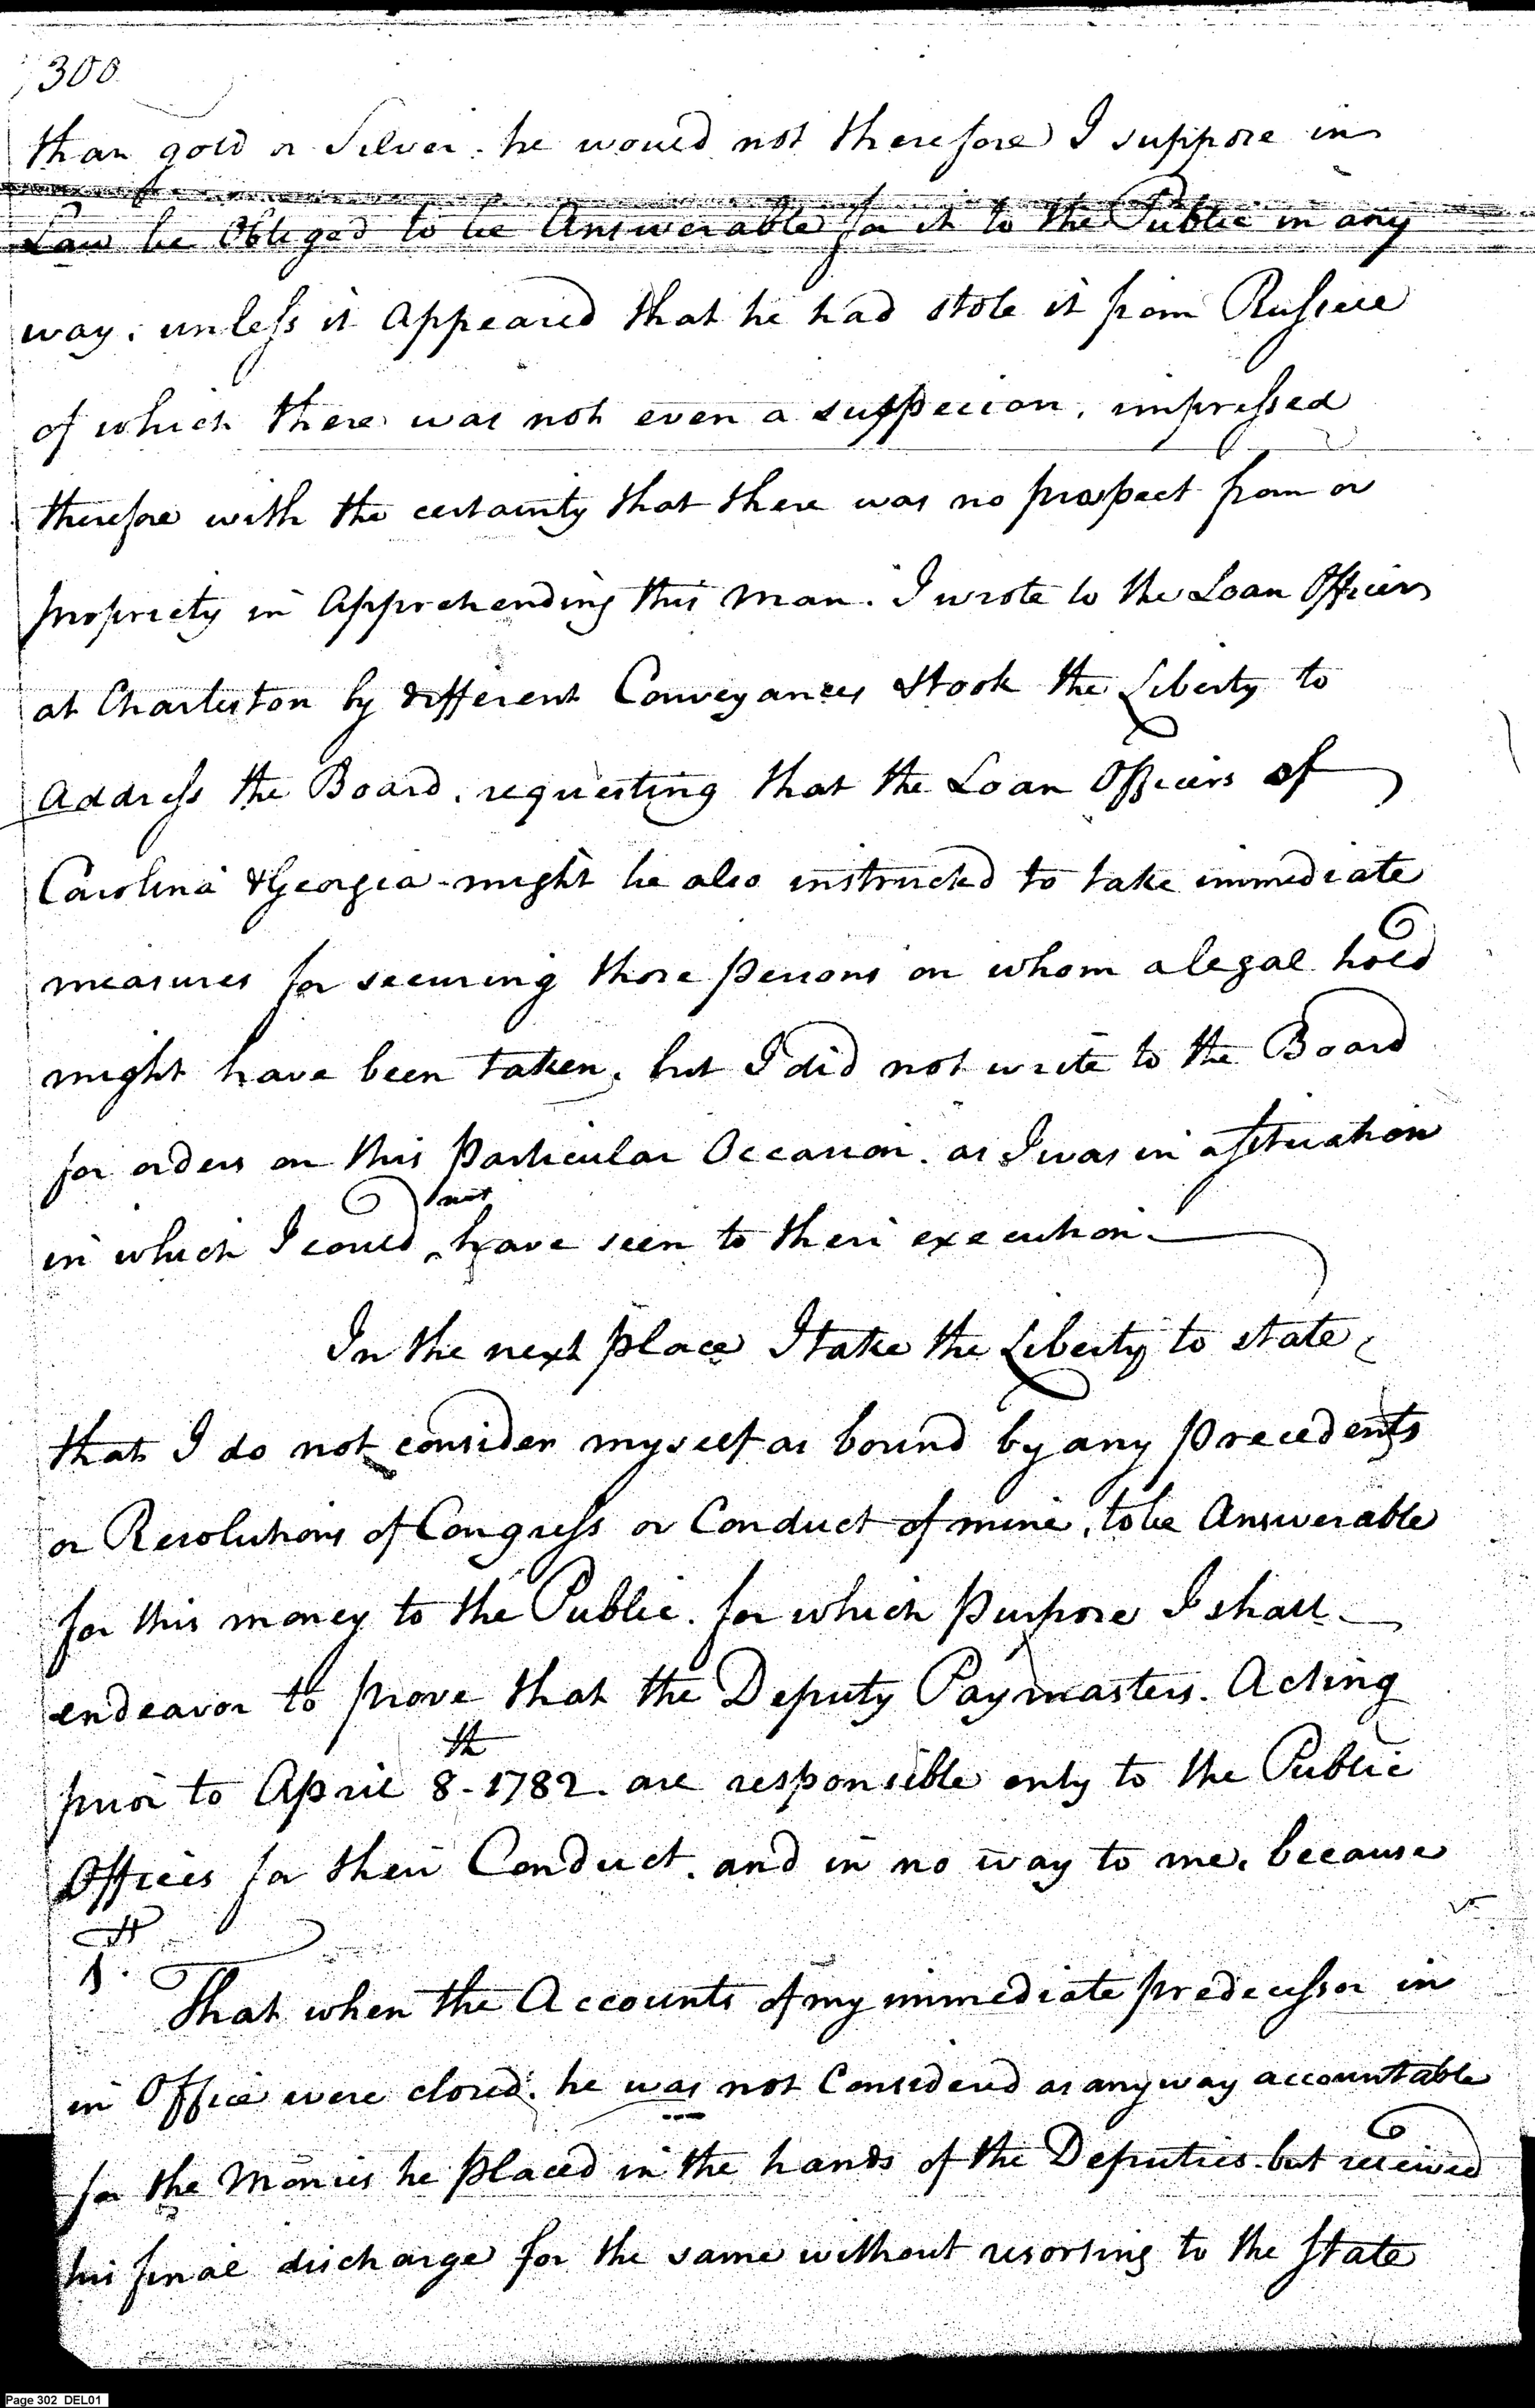 300
than gold or Silver. he would not therefore I suppose in
Law be Obliged to be Answerable for it to the Public in any
way. unless it Appeared that he had stole it from Russell
of which there was not even a suspecion. impressed
therefore with the certainty that there was no prospect from or
propriety in Apprehending this Man. I wrote to the Loan Officers
at Charleston by different Conveyances & took the Liberty to
Address the Board. requesting that the Loan Officers of
Carolina & Georgia might be also instructed to take immediate
measures for securing those persons on whom a legal hold
might have been taken. but I did not write to the Board
for orders on this Particular Occasion. as I was in a situation
not
in which I could ^ have seen to their execution.
In the next place I take the Liberty to state
that I do not consider myself as bound by any precedents
or Resolutions of Congress or Conduct of mine, to be Answerable
for this money to the Public. for which Purpose I shall
endeavor to prove that the Deputy Paymasters. Acting
prior to April 8th - 1782. are responsible only to the Public
Offices for their Conduct. and in no way to me. because
1st.
That when the Accounts of my immediate predecessor in
in Office were closed. he was not Considered as anyway accountable
for the Monies he placed in the hands of the Deputies. but received
his final discharge for the same without resorting to the State
Page 302 DEL01